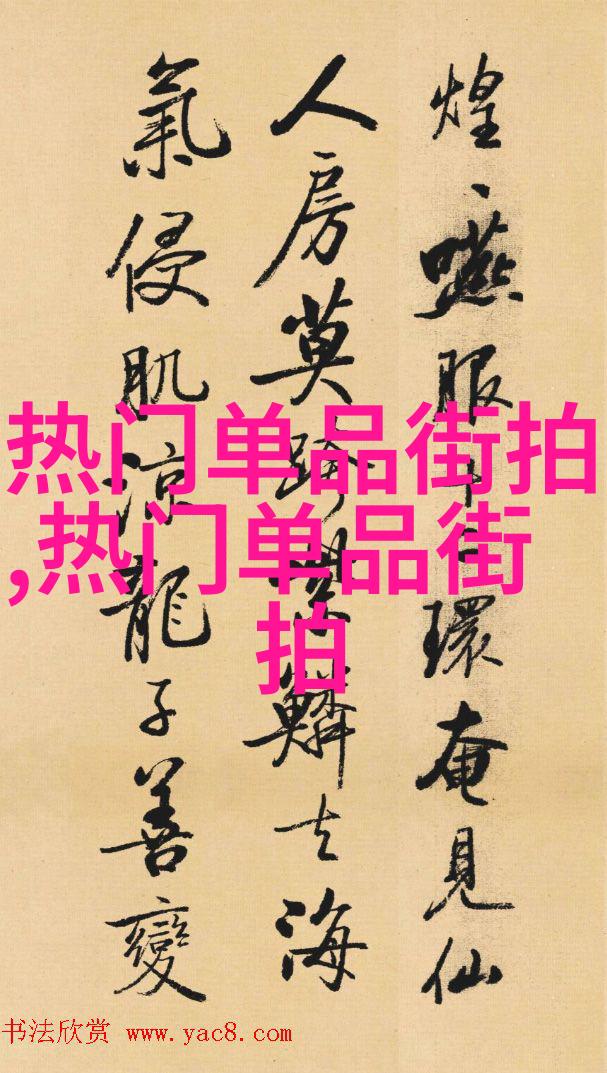 煌、嚥服十二環奄見仙
人房莫跨紫鱗去海
氣侵肌涼龍子善變
热门单品街拍
,热门单品街
拍
书法欣赏 www.yac8.com